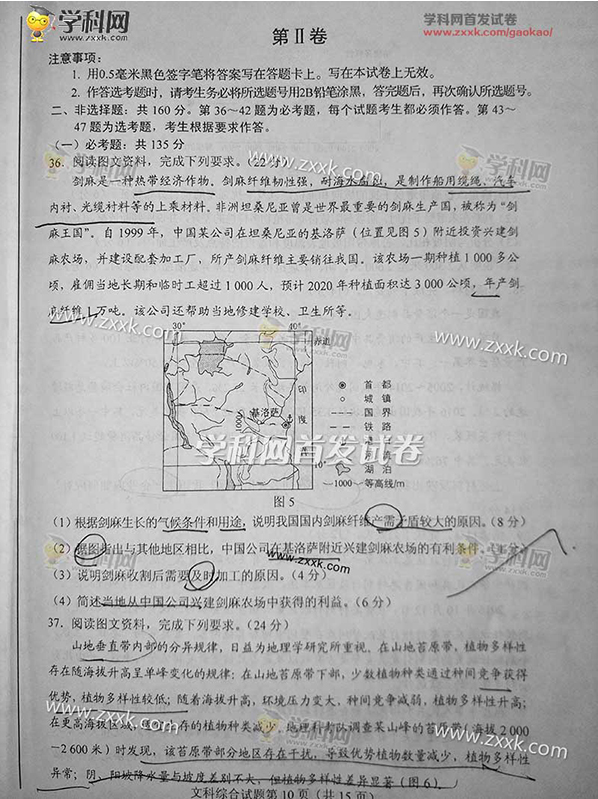 学科网
www.zxxk.com
学科网首发试卷
www.zxxk.com/gaokao/
第Ⅱ卷
注意事项：
1. 用0.5毫米黑色签字笔将答案写在答题卡上。写在本试卷上无效。
2. 作答选考题时，请考生务必将所选题号用2B铅笔涂黑，答完题后，再次确认所选题号。
二、非选择题：共 160 分。第 36～42 题为必考题，每个试题考生都必须作答。第 43～
47 题为选考题，考生根据要求作答。
（一）必考题：共 135 分
36. 阅读图文资料，完成下列要求。（22 分）
剑麻是一种热带经济作物。剑麻纤维韧性强，耐海水，是制作船用缆绳、汽车
内衬、光缆材料等的上乘材料。非洲坦桑尼亚曾是世界最重要的剑麻生产国，被称为“剑
麻王国”。自 1999 年，中国某公司在坦桑尼亚的基洛萨（位置见图 5）附近投资兴建剑
麻农场，并建设配套加工厂，所产剑麻纤维主要销往我国。该农场一期种植 1 000 多公
顷，雇佣当地长期和临时工超过 1 000 人，预计 2020 年种植面积达 3 000 公顷，年产剑
麻纤维 1 万吨。该公司还帮助当地修建学校、卫生所等。
学科网
www.zxxk.com
30° 40°
赤道
印
度
基洛萨
1000
10°
首都
城镇
国界
铁路
湖泊
—1000— 等高线/m
学科网首发试卷
www.zxxk.com
图 5
（1）根据剑麻生长的气候条件和用途，说明我国国内剑麻纤维产需矛盾较大的原因。（8 分）
（2）据图指出与其他地区相比，中国公司在基洛萨附近兴建剑麻农场的有利条件。（4 分）
（3）说明剑麻收割后需要及时加工的原因。（4 分）
（4）简述当地从中国公司兴建剑麻农场中获得的利益。（6 分）
37. 阅读图文资料，完成下列要求。（24 分）
山地垂直带内部的分异规律，日益为地理学研究所重视。在山地首原带，植物多样性
存在随海拔升高呈单峰变化的规律：在山地首原带下部，少数植物种类通过种间竞争获得
优势，植物多样性较低；随着海拔升高，环境压力变大，种间竞争减弱，植物多样性升高；
在更高海拔区域，存的植物种类减少。地理科考队调查某山峰的首原带（海拔 2 000
~2 600 米）时发现，该首原带部分地区存在干扰，导致优势植物数量减少，植物多样性
异常；阴、阳坡降水量与坡度差别不大，但植物多样性差异显著（图 6）。
文科综合试题第 10 页（共 15 页）